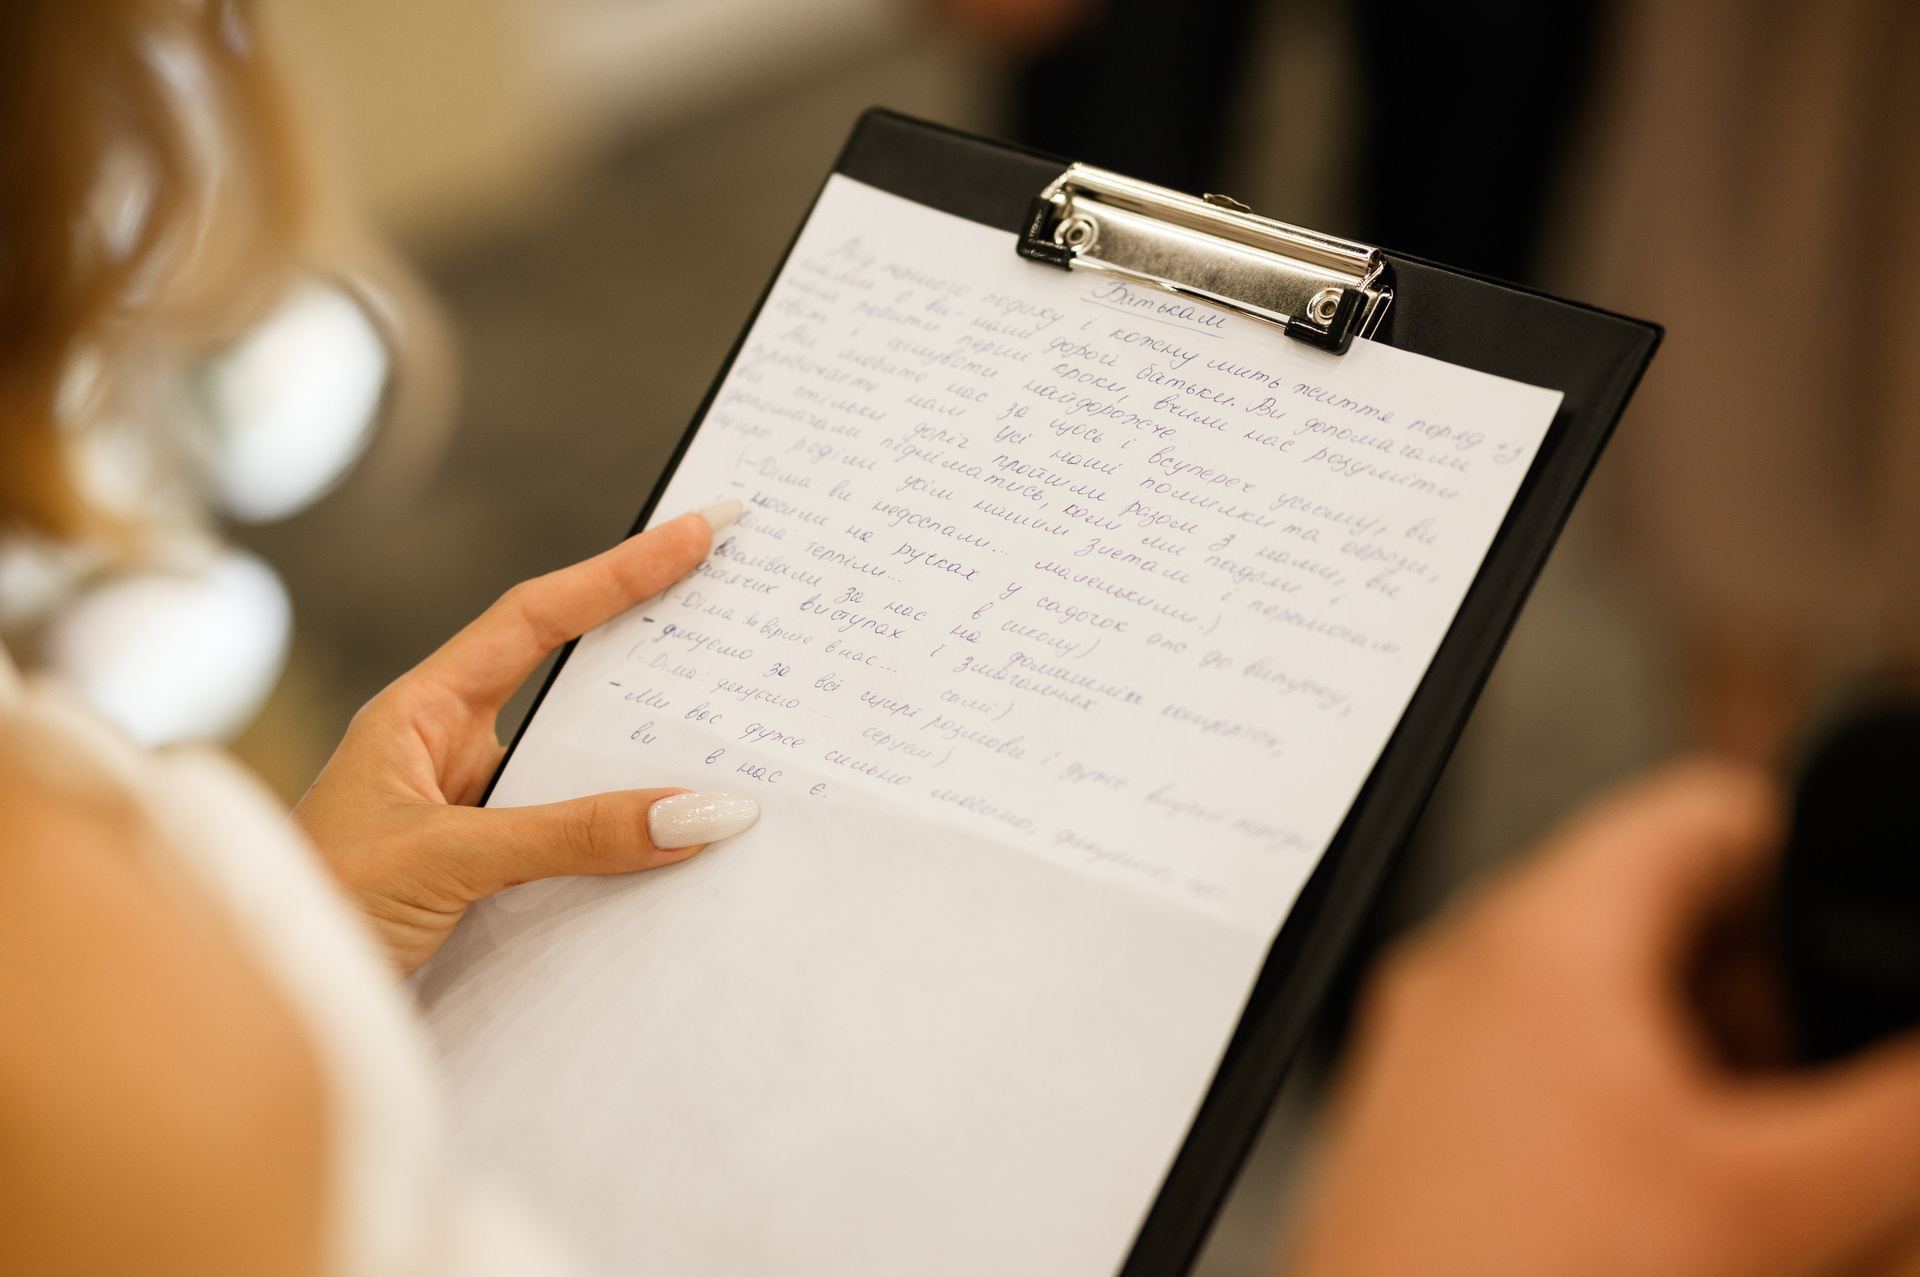 Батькам
Від першого подиху і кожну мить життя поряд із
нами є ви - наші дорогі батьки. Ви допомагали
нам робити перші кроки, вчили нас розуміти
світ і цінувати найдорожче.
Ви любите нас за щось і всупереч усьому, ви
пробачаєте нам усі наші помилки та образи,
ви стільки доріг пройшли разом з нами, ви
допомагали підніматись, коли ми падали і
щиро раділи усім нашим злетам і перемогам
(-Діма: ви недоспали... маленькими.)
- носили на ручках у садочок аж до випуску,
Діма: терпіли... в школу)
вболівали за нас на домашніх концертах,
виступах і змаганнях.
(-Діма: за вірше в нас... самі)
- дякуємо за всі щирі розмови і дуже
(-Діма: дякуємо... серцем)
- Ми вас дуже сильно любимо, дякуємо, що
ви в нас є.